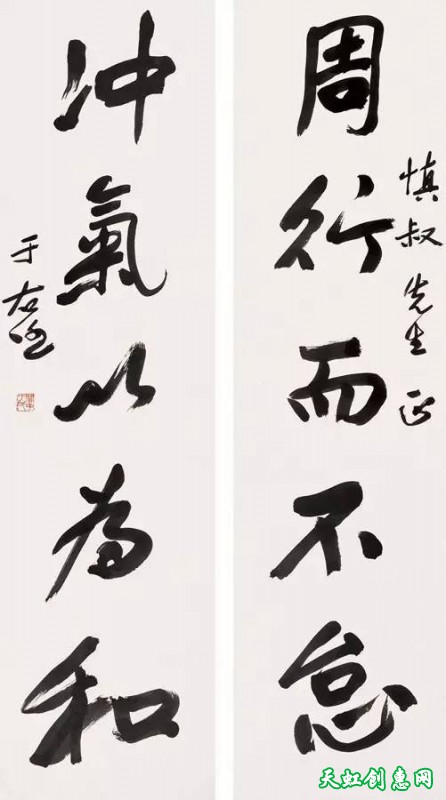 周行而不怠
慎叔先生正
冲氣以為和
于右任
天虹创惠网